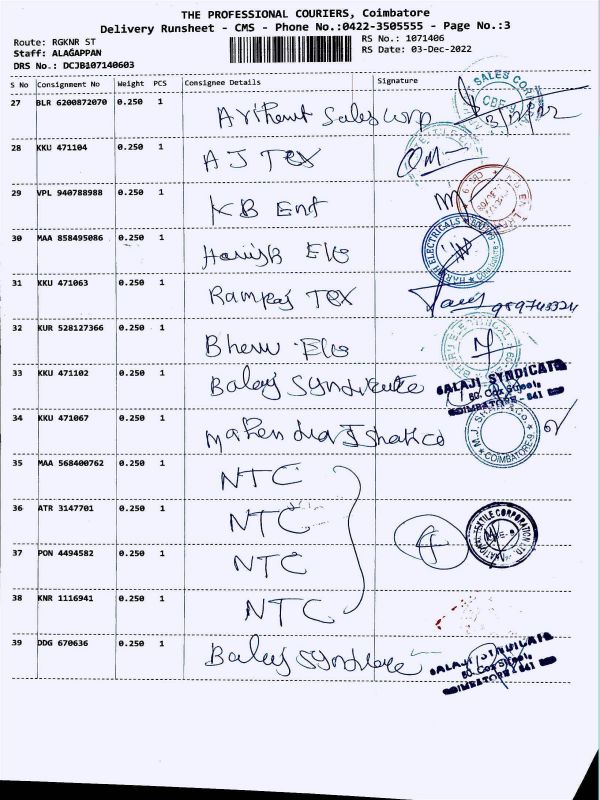 THE PROFESSIONAL COURIERS, Coimbatore
Delivery Runsheet - CMS - Phone No.:0422-3505555 - Page No.:3
Route: RGKNR ST
RS No.: 1071406
Staff: ALAGAPPAN
RS Date: 03-Dec-2022
DRS No.: DCJB107140603
S No Consignment No Weight PCS Consignee Details Signature
27 BLR 6200872070 0.250 1 Arihent Sales Corp
SALES CORP
CBE-9
28 KKU 471104 0.250 1 A J Tex
29 VPL 940788988 0.250 1 KB Ent
30 MAA 858495086 0.250 1 Harish Ele
HARSH ELECTRICALS
31 KKU 471063 0.250 1 Ramraj Tex
32 KUR 528127366 0.250 1 Bheru Ele
33 KKU 471102 0.250 1 Balaji Syndicate
BALAJI SYNDICATE
COIMBATORE - 641
34 KKU 471067 0.250 1 Mahendra J Shah Co
COIMBATORE-9
35 MAA 568400762 0.250 1 NTC
36 ATR 3147701 0.250 1 NTC
NATIONAL TEXTILE CORPORATION LTD.
37 PON 4494582 0.250 1 NTC
38 KNR 1116941 0.250 1 NTC
39 DDG 670636 0.250 1 Balaji Syndicate
BALAJI SYNDICATE
COIMBATORE - 641